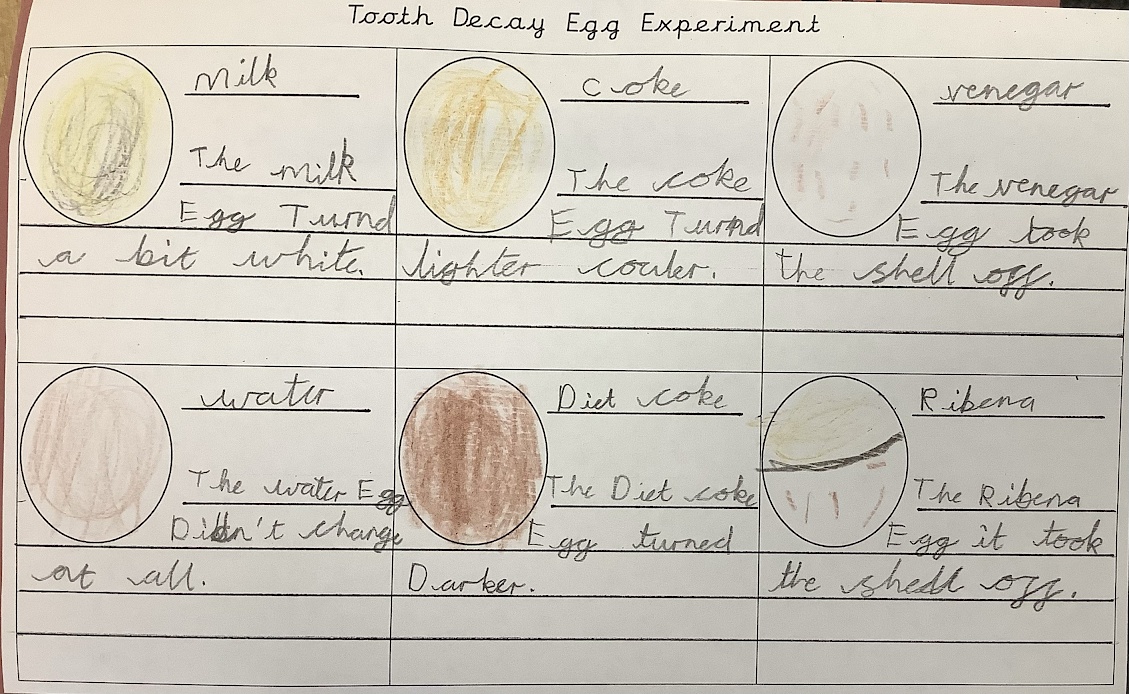 Tooth Decay Egg Experiment
Milk
The milk
Egg Turnd
a bit white.
Coke
The coke
Egg Turnd
lighter couler.
venegar
The venegar
Egg took
the shell off.
water
The water Egg
Didn't change
at all.
Diet coke
The Diet coke
Egg turned
Darker.
Ribena
The Ribena
Egg it took
the shell off.